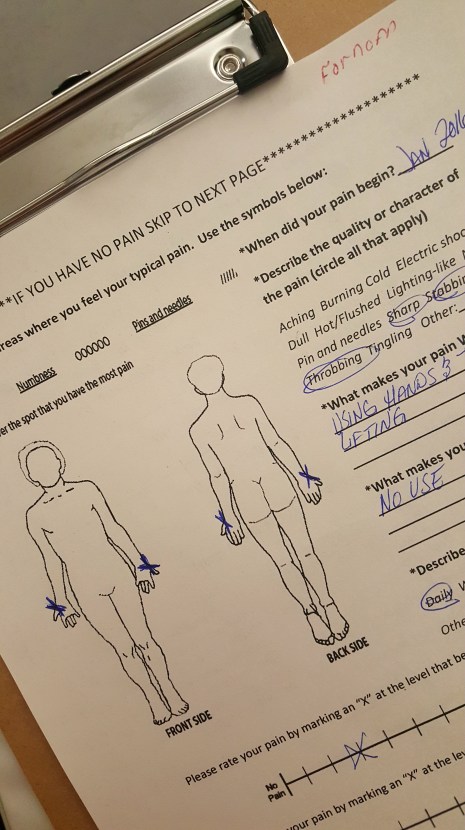 **IF YOU HAVE NO PAIN SKIP TO NEXT PAGE********************
areas where you feel your typical pain. Use the symbols below:
Numbness 000000 Pins and needles /////,
the spot that you have the most pain
*When did your pain begin? JAN
*Describe the quality or character of
the pain (circle all that apply)
Aching Burning Cold Electric
Dull Hot/Flushed Lighting-like
Pin and needles Sharp
Throbbing Tingling Other:
*What makes your pain
USING HANDS &
LIFTING
*What makes you
NO USE
*Describe
Daily
FRONT SIDE
BACK SIDE
Please rate your pain by marking an "X" at the level that
No
Pain
your pain by marking an "X" at the